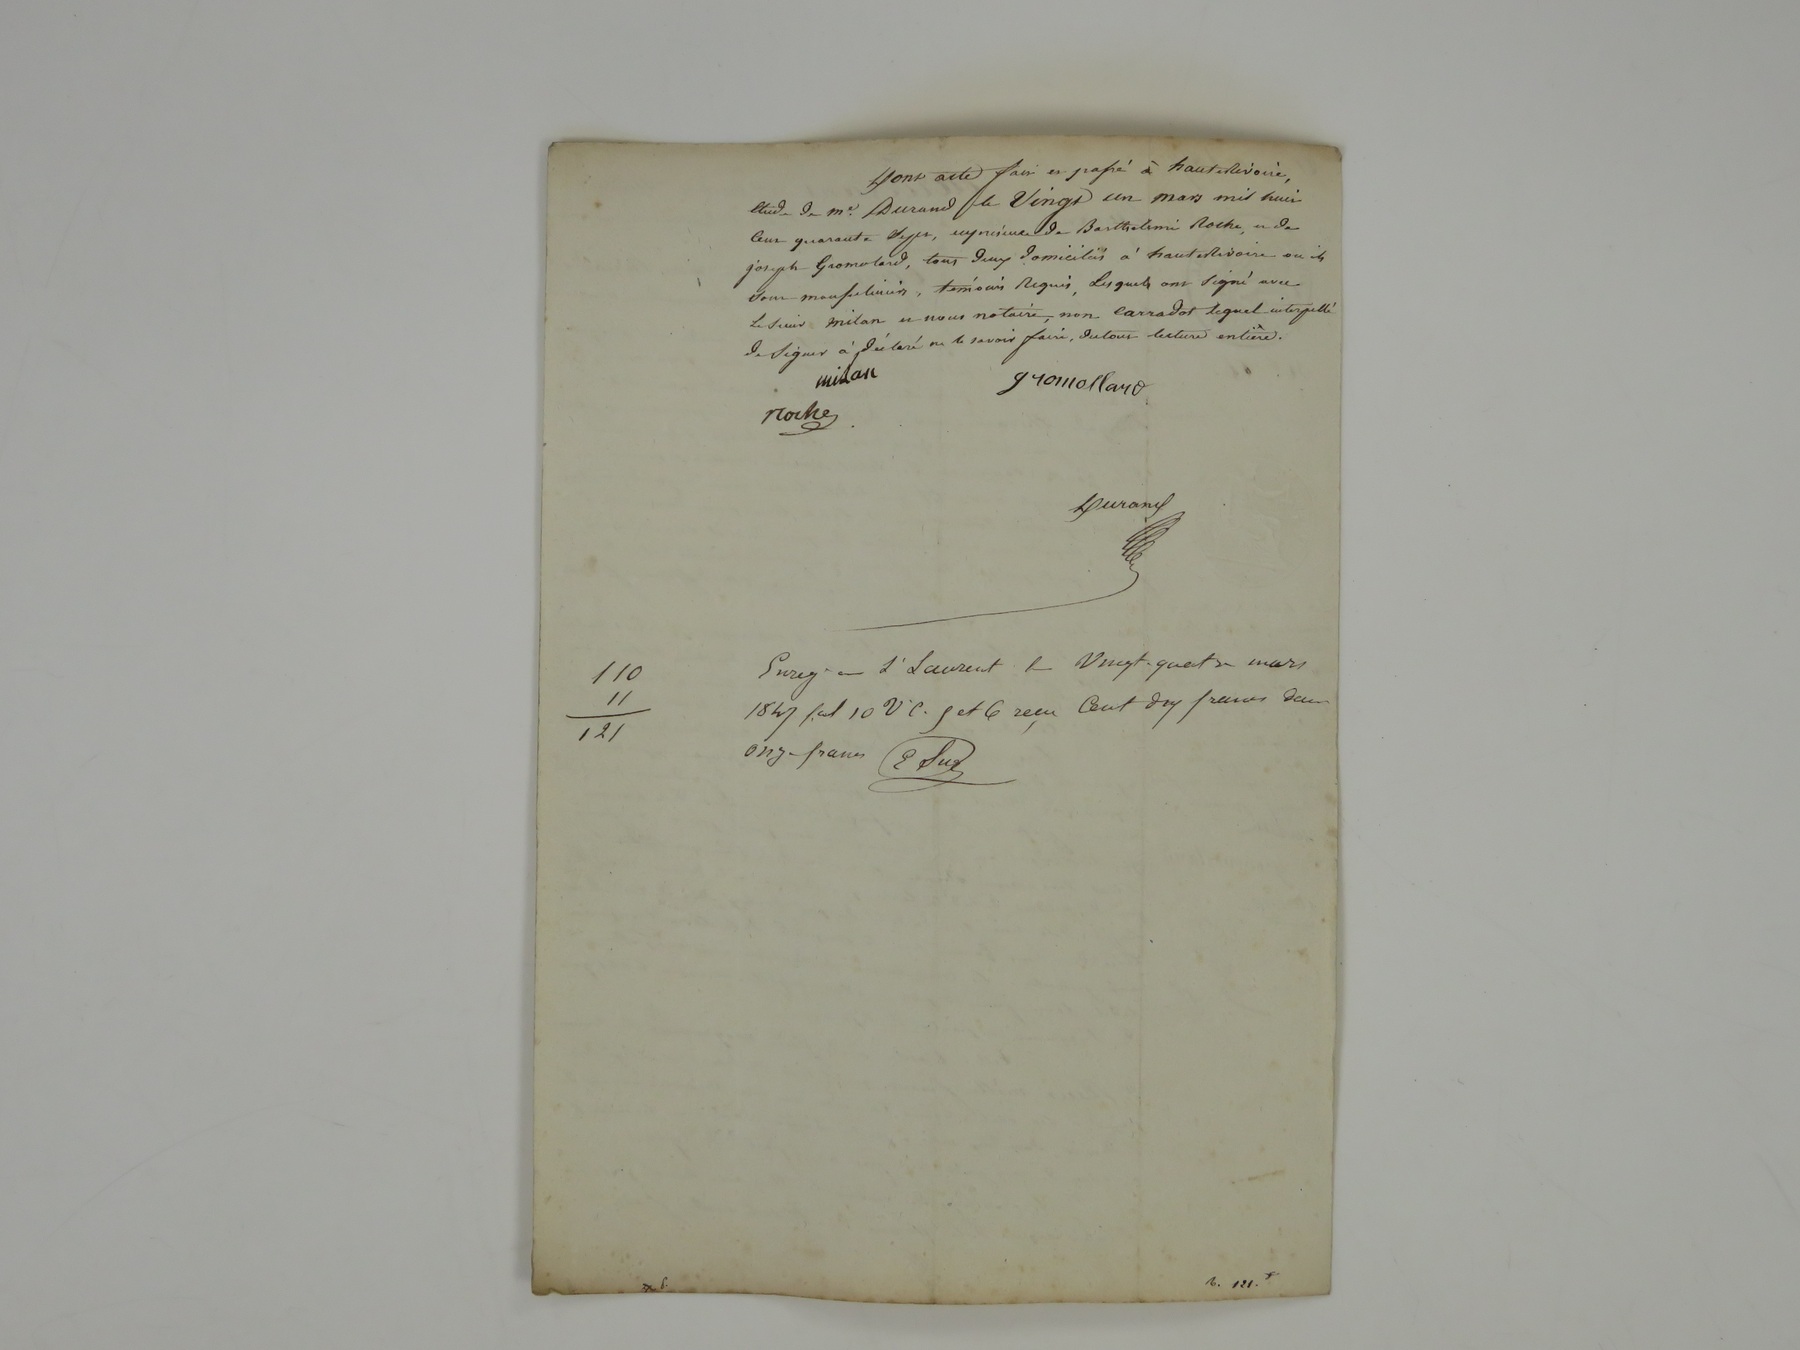 Dont acte fait et passé à hauterivoire,
Etude de me. Durand le Vingt un mars mil huit
Cent quarante Sept, en présence de Barthelemi Roche, et de
joseph Gromolard, tous deux domiciliés à hauterivoire où ils
sont témoins Requis, Lesquels ont Signé avec
Le Sieur milan et nous notaire, non Carradot lequel interpellé
de Signer à déclaré ne le savoir faire, du tout lecture entière.
milan gromollard
Roche
Durand
110
11
121
Enreg. a St Laurent le Vingt-quatre mars
1847 fol 10 Vo C. 5 et 6 reçu Cent dix francs
onze francs
R. 121.